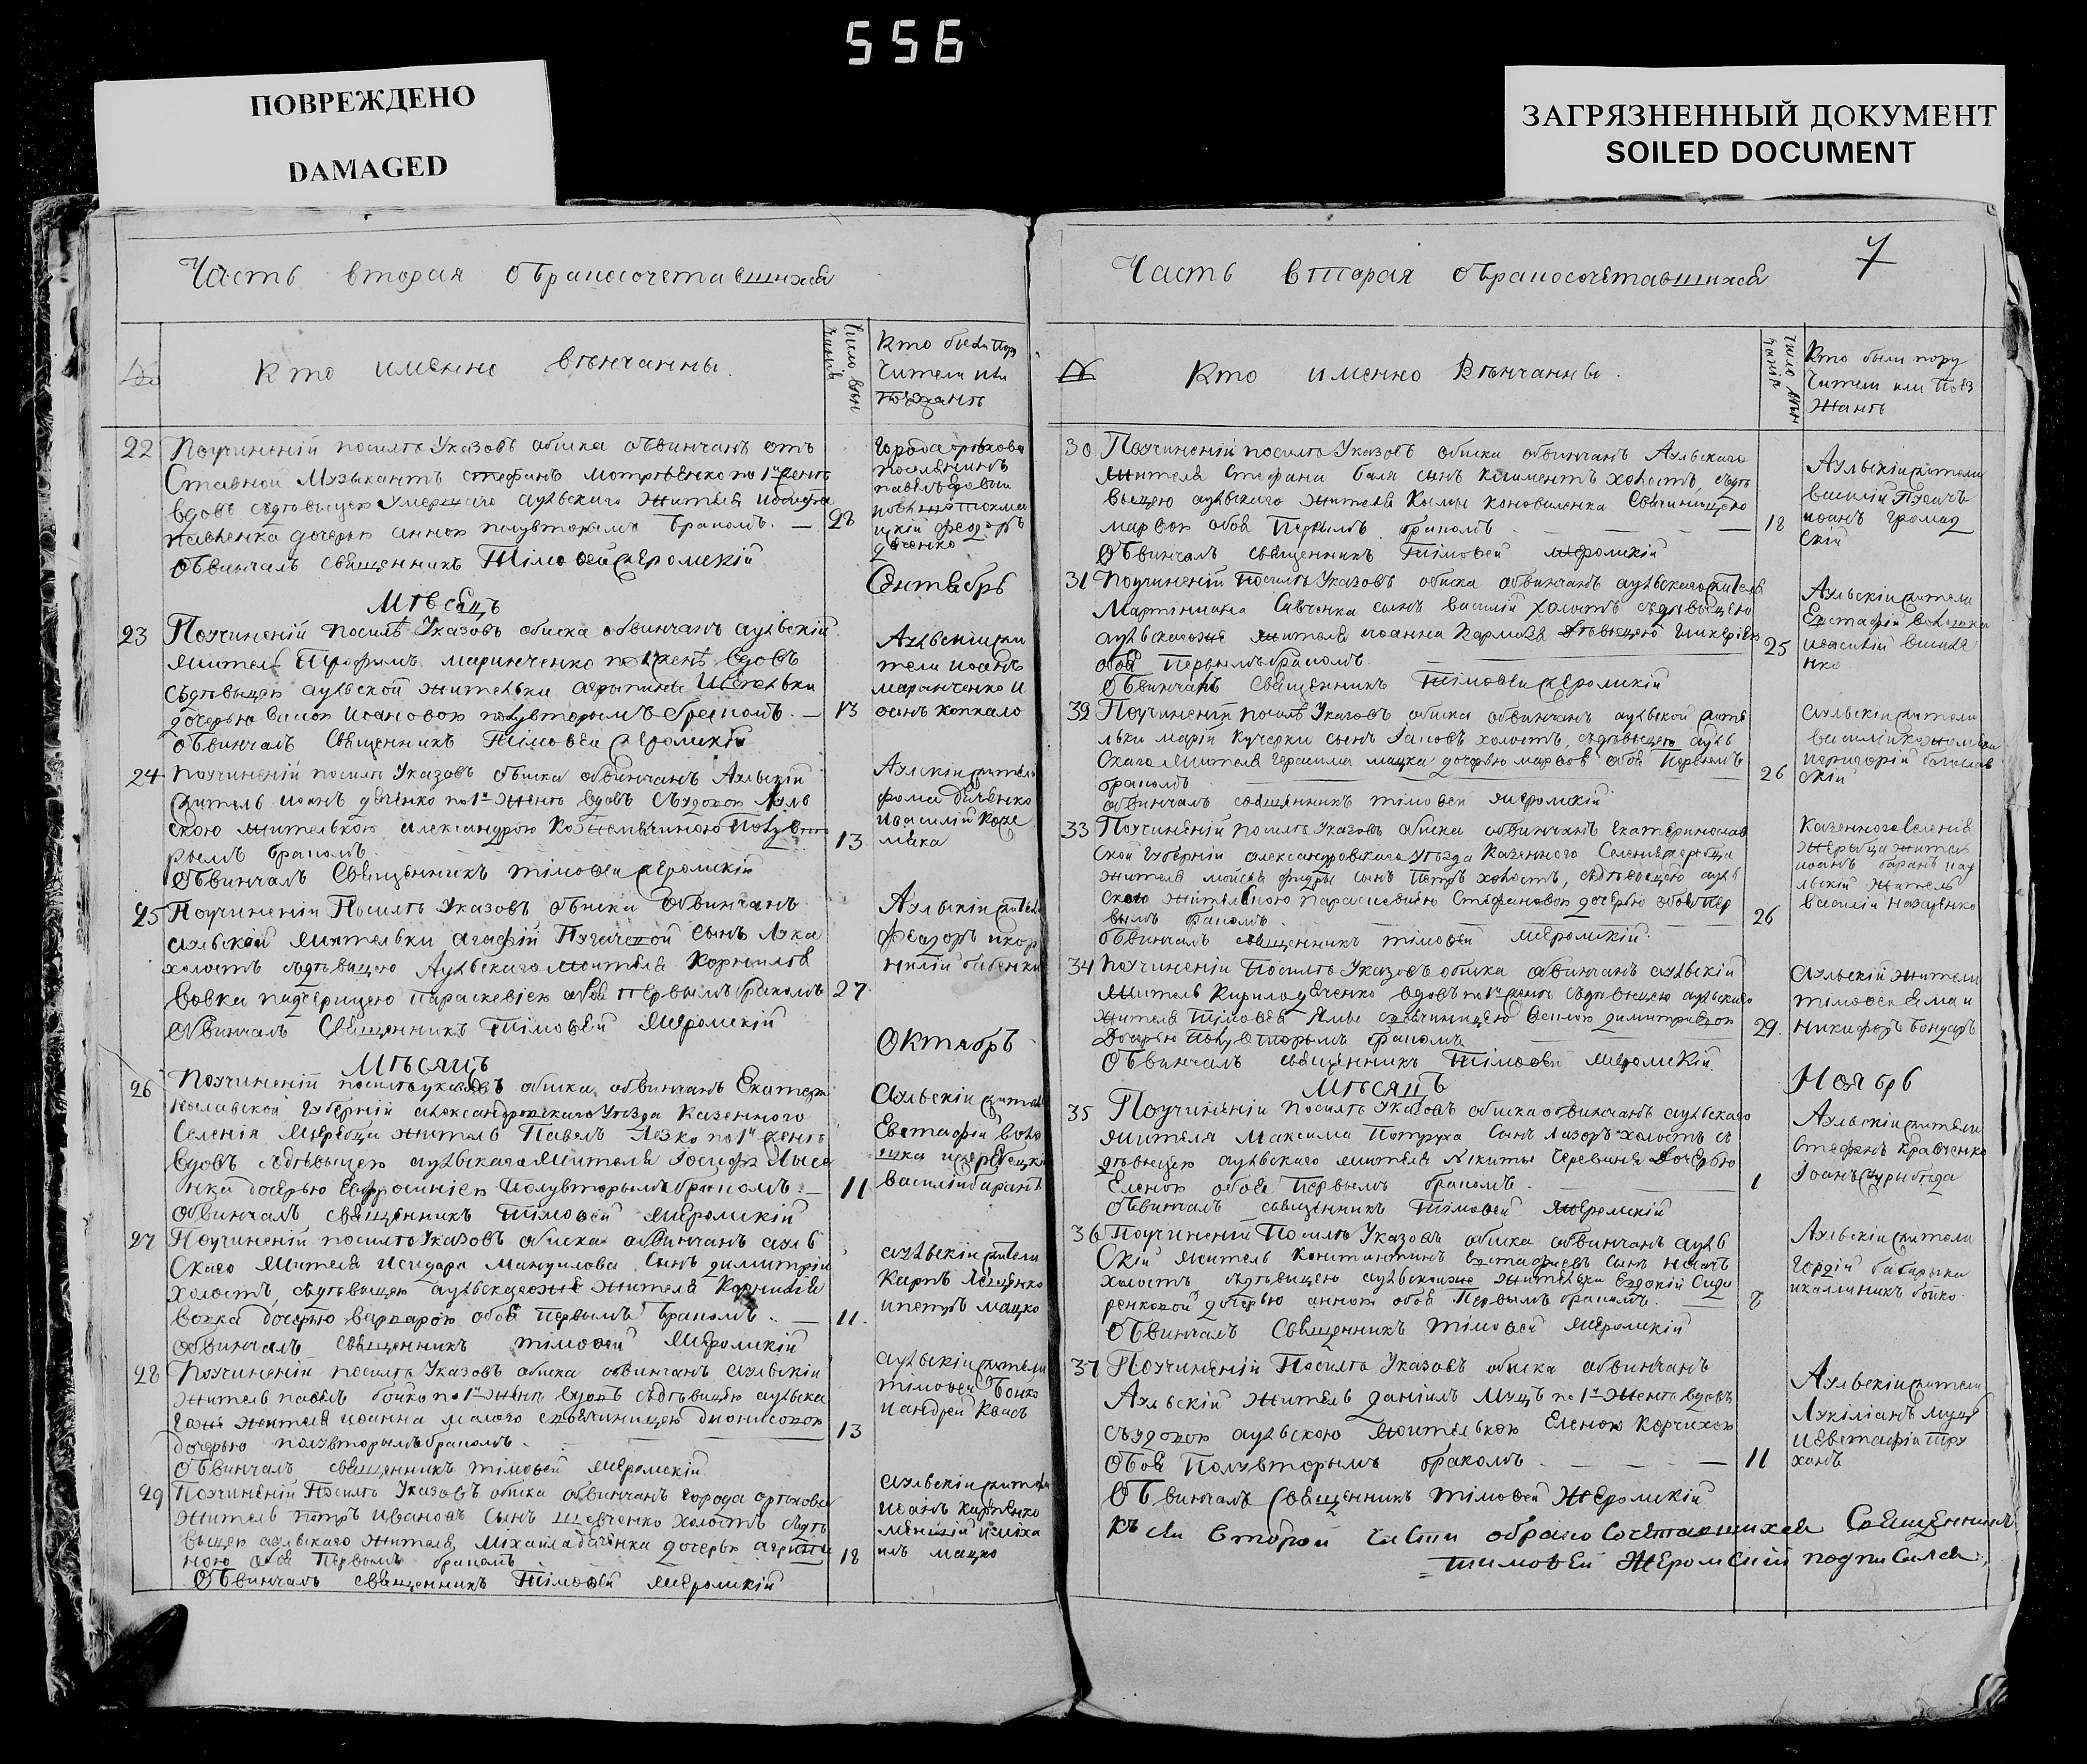 556
ПОВРЕЖДЕНО
DAMAGED
ЗАГРЯЗНЕННЫЙ ДОКУМЕНТ
SOILED DOCUMENT
Часть вторая обракосочетавшихся
№
Кто именно вѣнчанны.
Число вѣн
чанія
Кто были пору
чители или
поѣзжанѣ
22 Поучиненій посилѣ Указовъ обиска обвинчанъ отъ
Ставной Музыкантъ стефанъ по 1й женѣ
вдовъ съдѣвыцею Умершаго аульскаго жителя
дочерью анною полувторымъ бракомъ. — 28
Обвинчалъ священникъ Тімофей жеромскій
Города орѣхова
поселянинъ
павелъ
феодоръ
дяченко
Мѣсяцъ Сентябрь
23 Поучиненій посилѣ Указовъ обиска обвинчанъ аульскій
житель Трофимъ маринченко по 1й женѣ вдовъ
съдѣвыцею аульской жительки агрыпины
дочерью Ивановою полувторымъ бракомъ. — 13
обвинчалъ Священникъ Тімофей жеромскій
Аульскіи жи
тели иоанъ
маринченко и
оанъ копкало
24 поучиненій посилѣ Указовъ обиска обвинчанъ Аульскій
житель иоанъ дяченко по 1й женѣ вдовъ съудовою Ауль
скою жителькою александрою полувто
рымъ бракомъ. 13
Обвинчалъ Священникъ тімофей жеромскій
Аулскіи жители
фома дяченко
ивасилій коже
мяка
25 Поучиненій Посилѣ Указовъ обиска Обвинчанъ
аульской жительки агафій Пугачевой сынъ Лука
холостъ съдѣвицею Аульскаго жителя Корнилія
вовка падчерицею параскевіею обоя первымъ бракомъ 27
Обвинчалъ Священникъ Тімофей жеромскій
Аульскіи жители
Феодоръ икор
нилій бабенки
Мѣсяцъ Октябрь
26 Поучиненій посилѣ указовъ обиска обвинчанъ Екатери
нославской Губерній александровскаго Уѣзда Казенного
Селенія жеребца житель Павелъ Лезко по 1й женѣ
вдовъ съдѣвыцею аульскаго жителя Іосифа Лысе
нка дочерью Евфросиніею полувторымъ бракомъ. — 11
обвинчалъ священникъ Тімофей жеромскій
Аульскіи жители
Евстафій воло
шка ижеребецкій
василій баранъ
27 Поучиненій посилѣ Указовъ обиска обвинчанъ ауль
скаго жителя Исидора Мануилова Сынъ димитрій
холостъ, съдѣвыцею аульскагоже жителя Корнилія
вовка дочерью варварою обоя первымъ бракомъ. — 11.
обвинчалъ священникъ тімофей жеромскій
аульскіи жители
Карпъ Лещенко
ипетръ мацко
28 Поучиненій посилѣ Указовъ обиска обвинчанъ аульскій
житель павелъ бойко по 1й женѣ вдовъ съдѣвицею аульска
гоже жителя иоанна малого
дочерью полувторымъ бракомъ. 13
Обвинчалъ священникъ тімофей жеромскій
аульскіи жители
тімофей Бойко
иандрей Квасъ
29 Поучиненій Посилѣ Указовъ обиска обвинчанъ города орѣхова
житель петръ Ивановъ сынъ шевченко холостъ съдѣ
выцею аульскаго жителя Міхаила дяченка дочерью агрипи
ною обоя первымъ бракомъ 18
Обвинчалъ священникъ Тімофей жеромскій
аульскіи жители
иванъ карпенко
иміха
илъ мацко
Часть вторая обракосочетавшихся
7
№
Кто именно Вѣнчанны.
число вѣн
чанія
Кто были пору
чители или поѣз
жанѣ
30 Поучиненій посилѣ Указовъ обиска обвинчанъ Аульскаго
жителя Стефана баля сынъ Климентъ холостъ, съдѣ
выцею аульскаго жителя Климы коноваленка Своячиницею
марфою обоя первымъ бракомъ — 18
Обвинчалъ священникъ Тімофей жеромскій
Аульскіи жители
василій Пугачъ
иоанъ громад
скій
31 Поучиненій Посилѣ Указовъ обиска обвинчанъ аульскаго жителя
Мартиниана Савченка сынъ василій холостъ съдѣвыцею
аульскагоже жителя иоанна Кармазя дѣвыцею Гликеріею
обоя Первымъ бракомъ. 25
Обвинчалъ Священникъ Тімофеи жеромскій
Аульскіи жители
Евстафій волошка
ивасилій
32 Поучиненій посилѣ Указовъ обиска обвинчанъ аульской жите
льки марій Кучерки сынъ Іаковъ холостъ, съдѣвыцею ауль
скаго жителя герасима мацка дочерью марфою обоя Первымъ
бракомъ 26
обвинчалъ священникъ тімофей жеромскій
Аульскіи жители
василій
игригорій богослав
скій
33 Поучиненій посилѣ Указовъ обиска обвинчанъ Екатеринослав
ской Губерній александровскаго уѣзда Казенного Селенія жеребца
жителя мойсея сынъ Петръ холостъ, съдѣвыцею ауль
скою жителькою параскевиею Стефановою дочерью обоя пер
вымъ бракомъ. — 26
обвинчалъ священникъ тімофей жеромскій.
казенного селенія
жеребца житель
иоанъ баранъ иау
льскій житель
василій назаренко
34 Поучиненій Посилѣ Указовъ обиска обвинчанъ аульскій
житель Кирило дяченко вдовъ по 1й женѣ съдѣвыцею аульскаго
жителя Тімофея Ямы своячиницею димитриевою
дочерью полувторымъ бракомъ 29.
Обвинчалъ священникъ Тімофей жеромскій.
аульскій жители
тімофей яма и
никифоръ бондарь
Мѣсяцъ Ноябрь
35 Поучиненій посилѣ Указовъ обиска обвинчанъ аульскаго
жителя Максима Потруха Сынъ Лазоръ холостъ съ
дѣвыцею аульскаго жителя Нікиты Черевиня дочерью
Еленою обоя Первымъ бракомъ. — 1
Обвинчалъ священникъ Тімофей жеромскій
Аульскіи жители
Стефанъ Кравченко
Іоанъ
36 Поучиненій Посилѣ Указовъ обиска обвинчанъ ауль
скій житель Константинъ Евстафиевъ сынъ
холостъ съдѣвицею аульскоиже жительки Евдокій Сидо
ренковой дочерью анною обоя Первымъ бракомъ. — 8
Обвинчалъ Священникъ Тімофей жеромскій
Аульскіи жители
гордій
икалиникъ бойко.
37 Поучиненій Посилѣ Указовъ обиска обвинчанъ
Аульскій житель даніилъ Муцъ по 1й женѣ вдовъ
съудовою аульскою жителькою Еленою Корчихою
обоя Полувторымъ бракомъ. — 11
Обвинчалъ Священникъ Тімофей Жеромскій
Аульскіи жители
Лукіліанъ муцъ
иевстафій Тру
ханъ
Къ сей второй части обрако Сочетавшихся Священникъ
тимофей Жеромскій подписался